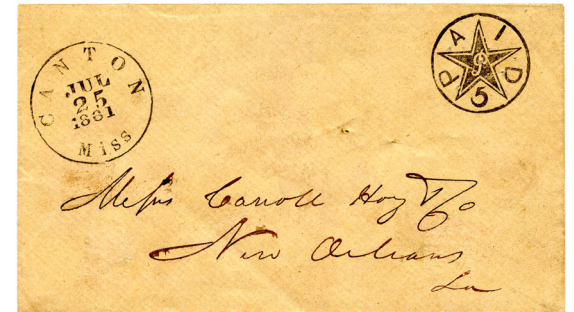 CANTON
JUL
25
1861
Miss
PAID
P
5
Messrs Carroll Hoy & Co
New Orleans
La